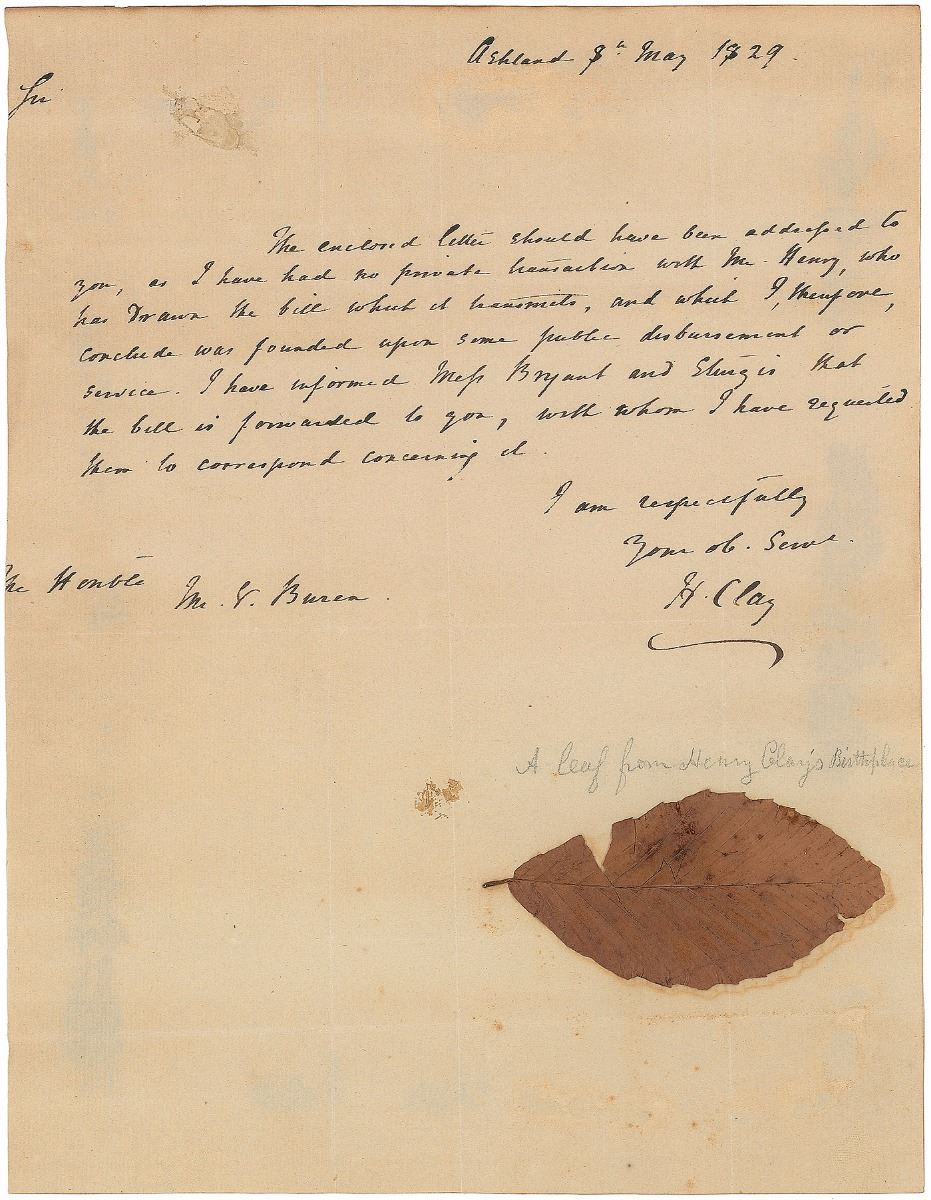 Ashland 8th May 1829.
Sir
The enclosed letter should have been addressed to
you, as I have had no private transaction with Mr. Henry, who
has Drawn the bill which it transmits, and which I, therefore,
conclude was founded upon some public disbursement or
service. I have informed Mess Bryant and Sturgis that
the bill is forwarded to you, with whom I have requested
them to correspond concerning it.
I am respectfully
Your ob. Servt.
The Honble
Mr. V. Buren.
H. Clay
A leaf from Henry Clay's Birthplace